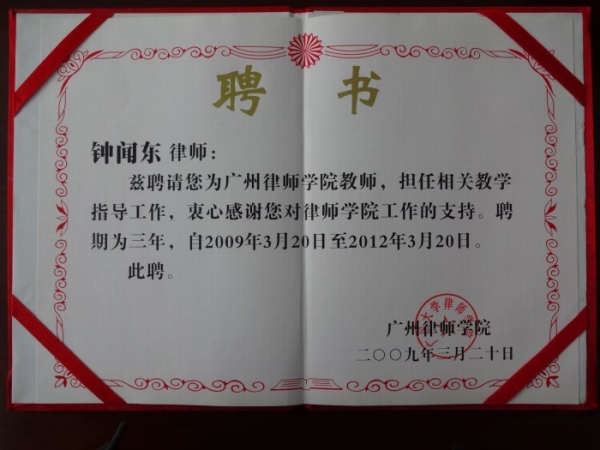 聘书
钟闻东 律师：
兹聘请您为广州律师学院教师，担任相关教学
指导工作，衷心感谢您对律师学院工作的支持。聘
期为三年，自2009年3月20日至2012年3月20日。
此聘。
广州大学律师学院
广州律师学院
二〇〇九年三月二十日